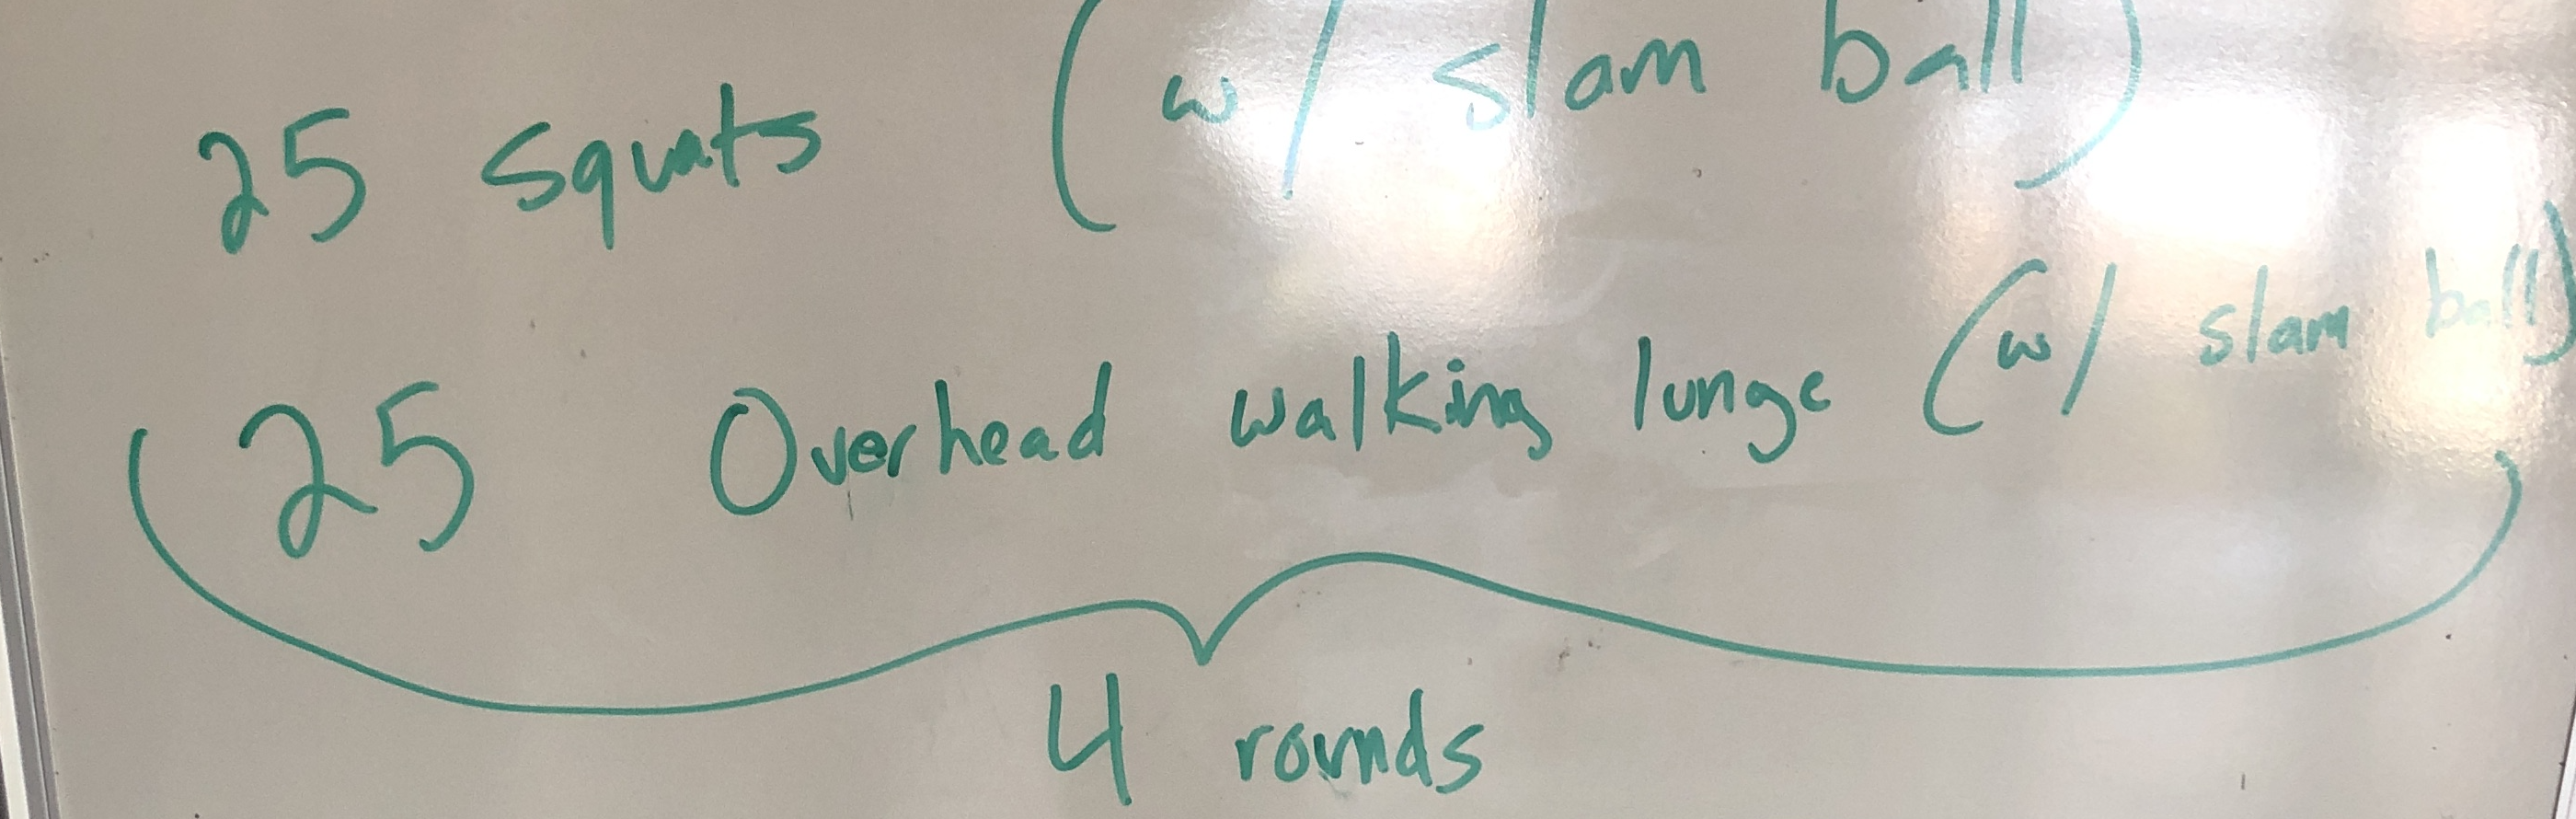 25 squats (w/ slam ball)
25 Overhead walking lunge (w/ slam ball)
4 rounds